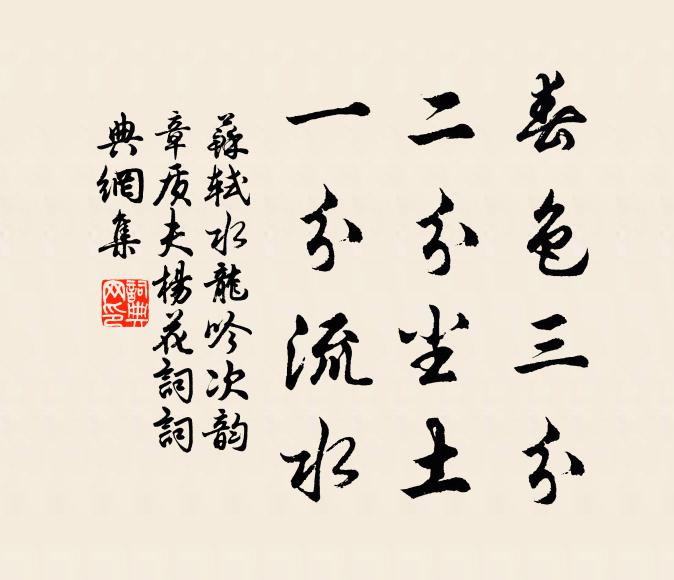 春色三分
二分尘土
一分流水
蘇軾水龍吟次韵
章质夫楊花詞詞
典網集
詞典
网印